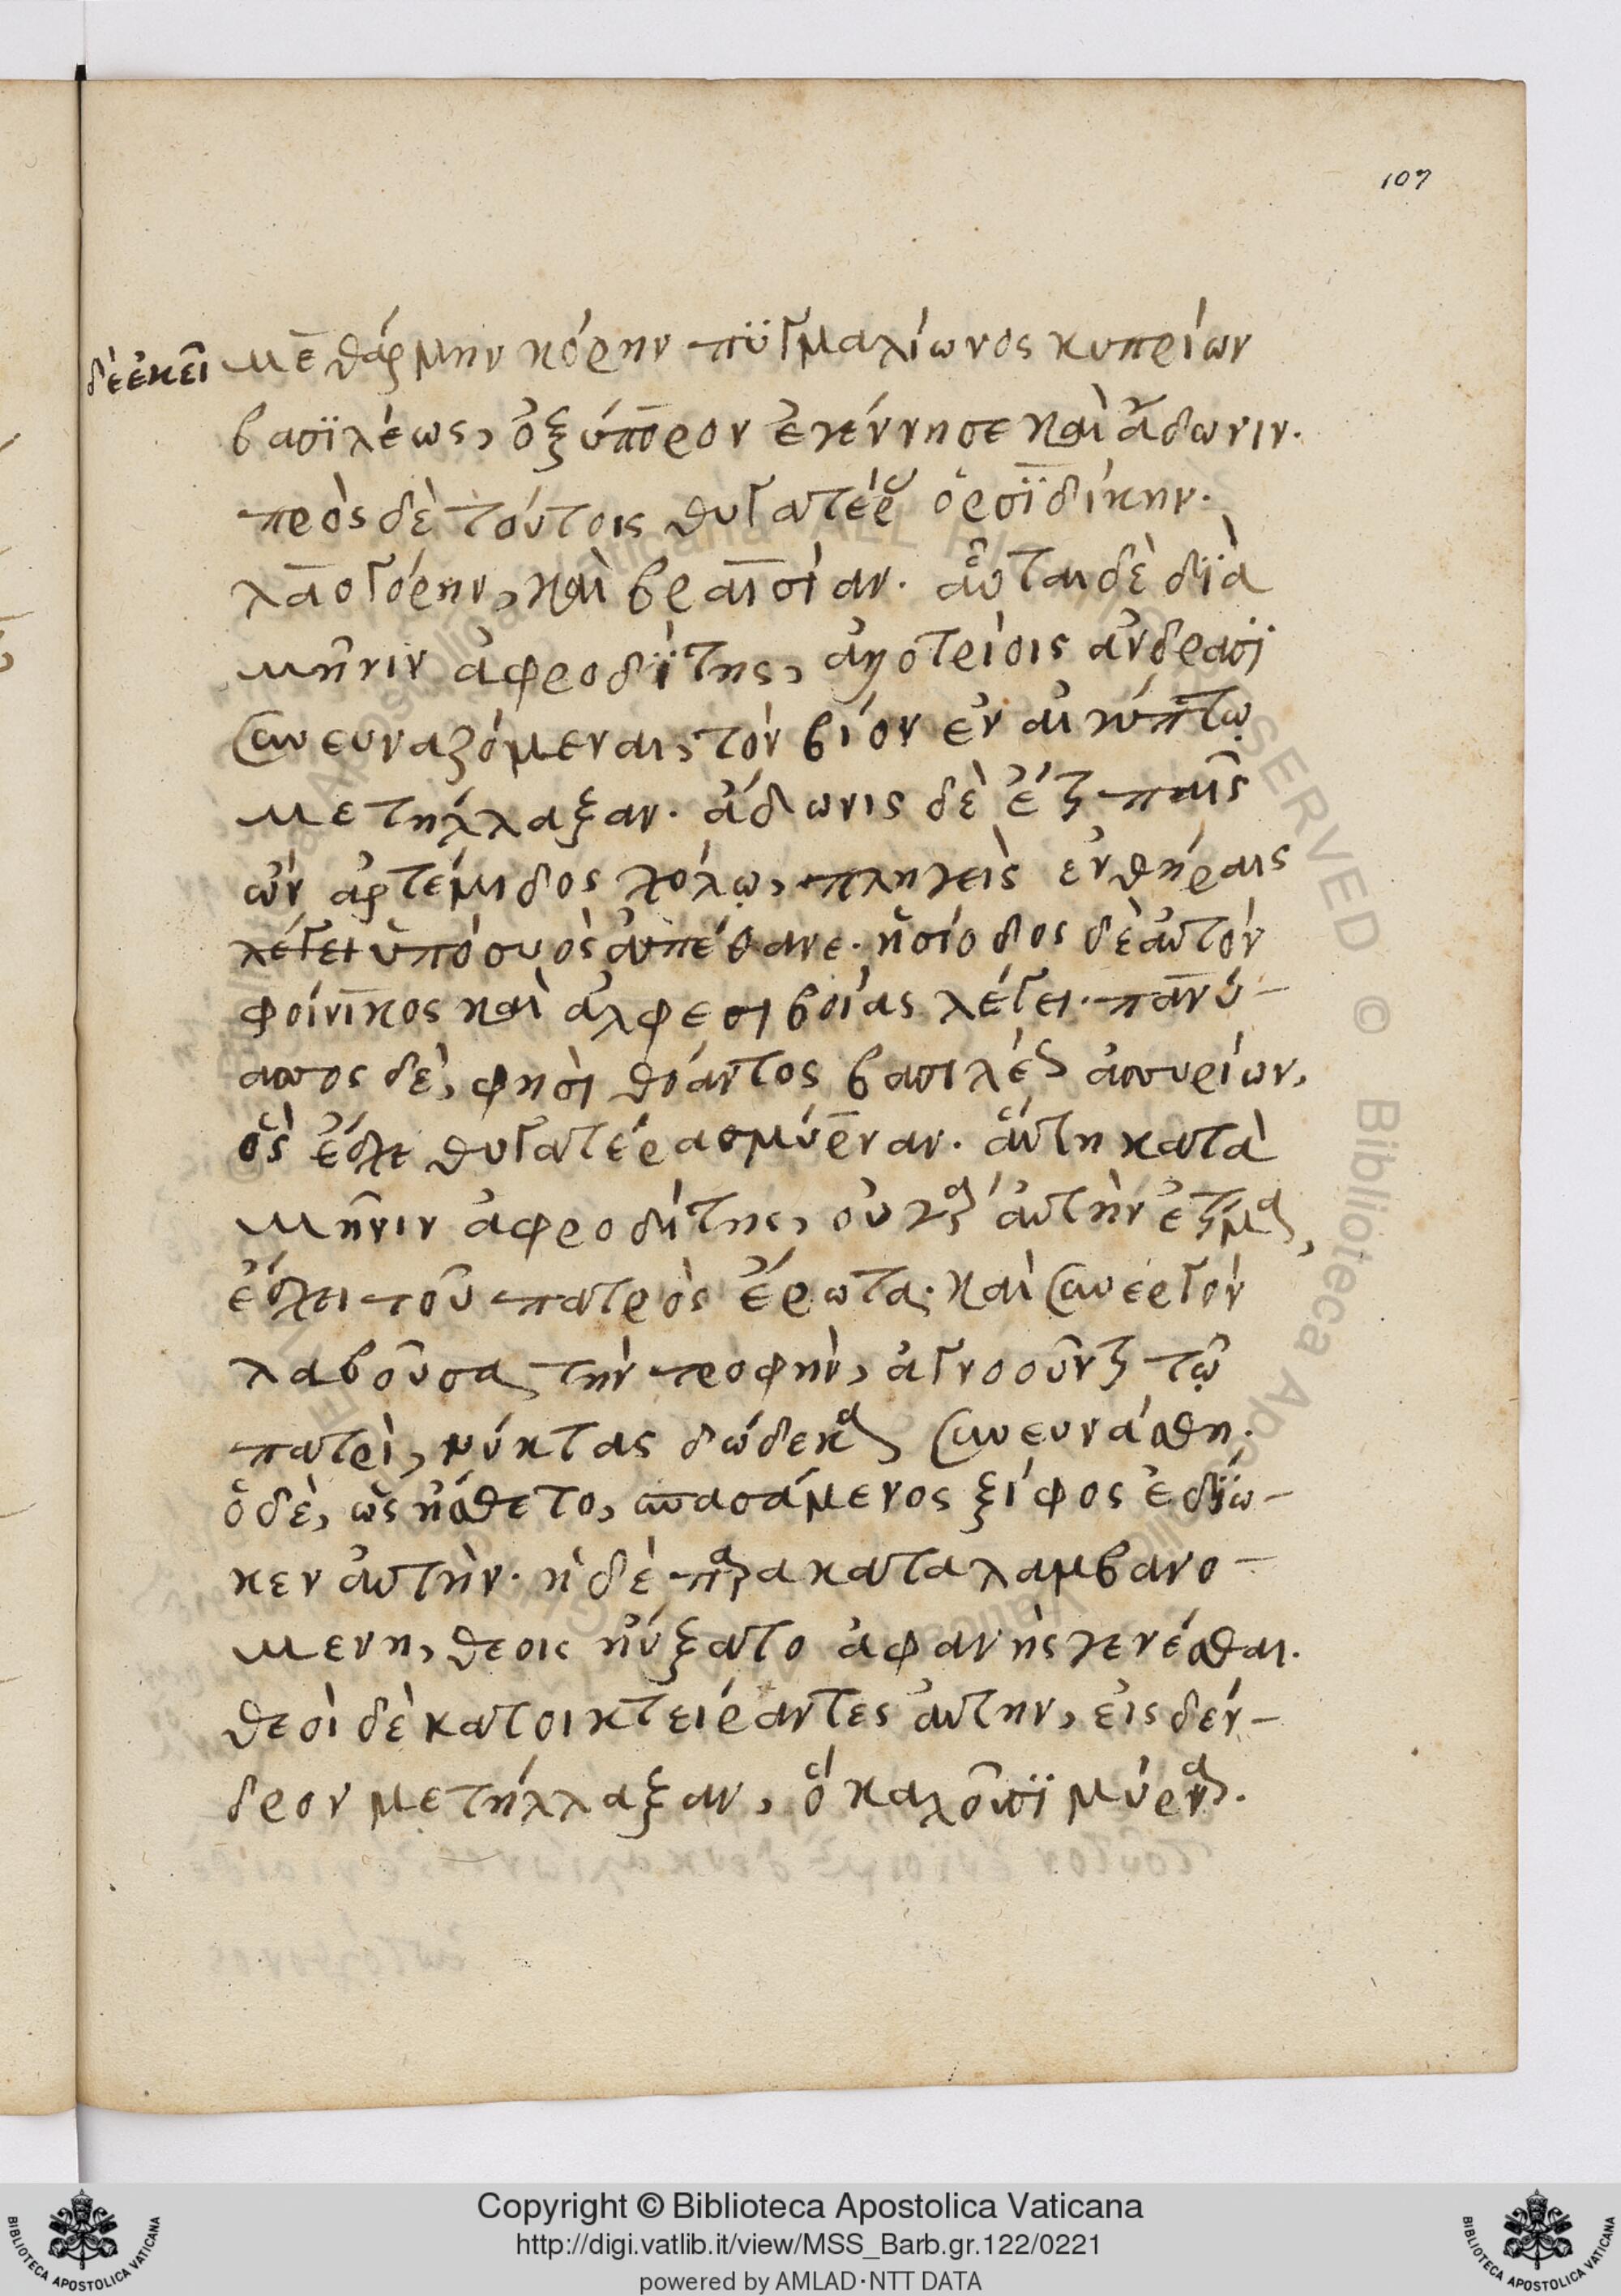 107
δὲ ἐκεῖ
Μεθάρμην κόρην πϋγμαλίωνος κυπρίων
βασϊλέως, ὀξύπορον ἐγέννησε καὶ ἄδωνιν.
πρὸς δὲ τούτοις θυγατέρας ὀρσϊδίκην.
λαογόρην, καὶ βραισίαν. αὗται δὲ δϊὰ
μῆνιν ἀφροδΐτης, ἀλλοτρίοις ἀνδρασϊ
συνευναζόμεναι, τὸν βίον ἐν αἰγύπτῳ
μετήλλαξαν. ἄδωνις δὲ ἔτι παῖς
ὢν ἀρτέμιδος χόλῳ, πληγεὶς ἐν θήραις
λέγει ὑπὸ συὸς ἀπέθανε. ἡσίοδος δὲ αὐτὸν
φοίνικος καὶ ἀλφεσιβοίας λέγει. πανύ-
ασσος δὲ, φησὶ θόαντος βασιλέως ἀσσυρίων,
ὃς ἔσχε θυγατέρα σμύρναν. αὕτη κατὰ
μῆνιν ἀφροδίτης, οὐ γὰρ αὐτὴν ἐτίμα,
ἔσχει τοῦ πατρὸς ἔρωτα. καὶ συνεργὸν
λαβοῦσα τὴν τροφὴν, ἀγνοοῦντι τῷ
πατρὶ, νύκτας δώδεκα συνευνάσθη.
ὁ δὲ, ὡς ἤσθετο, σπασάμενος ξίφος ἐδϊώ-
κεν αὐτὴν. ἡ δὲ παρακαταλαμβανο-
μενη, θεοις ηὔξατο ἀφανὴς γενέσθαι.
θεοὶ δὲ κατοικτείραντες αὐτὴν, εἰς δέν-
δρον μετήλλαξαν, ὃ καλοῦσϊ μύρναν.
Copyright © Biblioteca Apostolica Vaticana
http://digi.vatlib.it/view/MSS_Barb.gr.122/0221
powered by AMLAD·NTT DATA
BIBLIOTECA APOSTOLICA VATICANA
BIBLIOTECA APOSTOLICA VATICANA